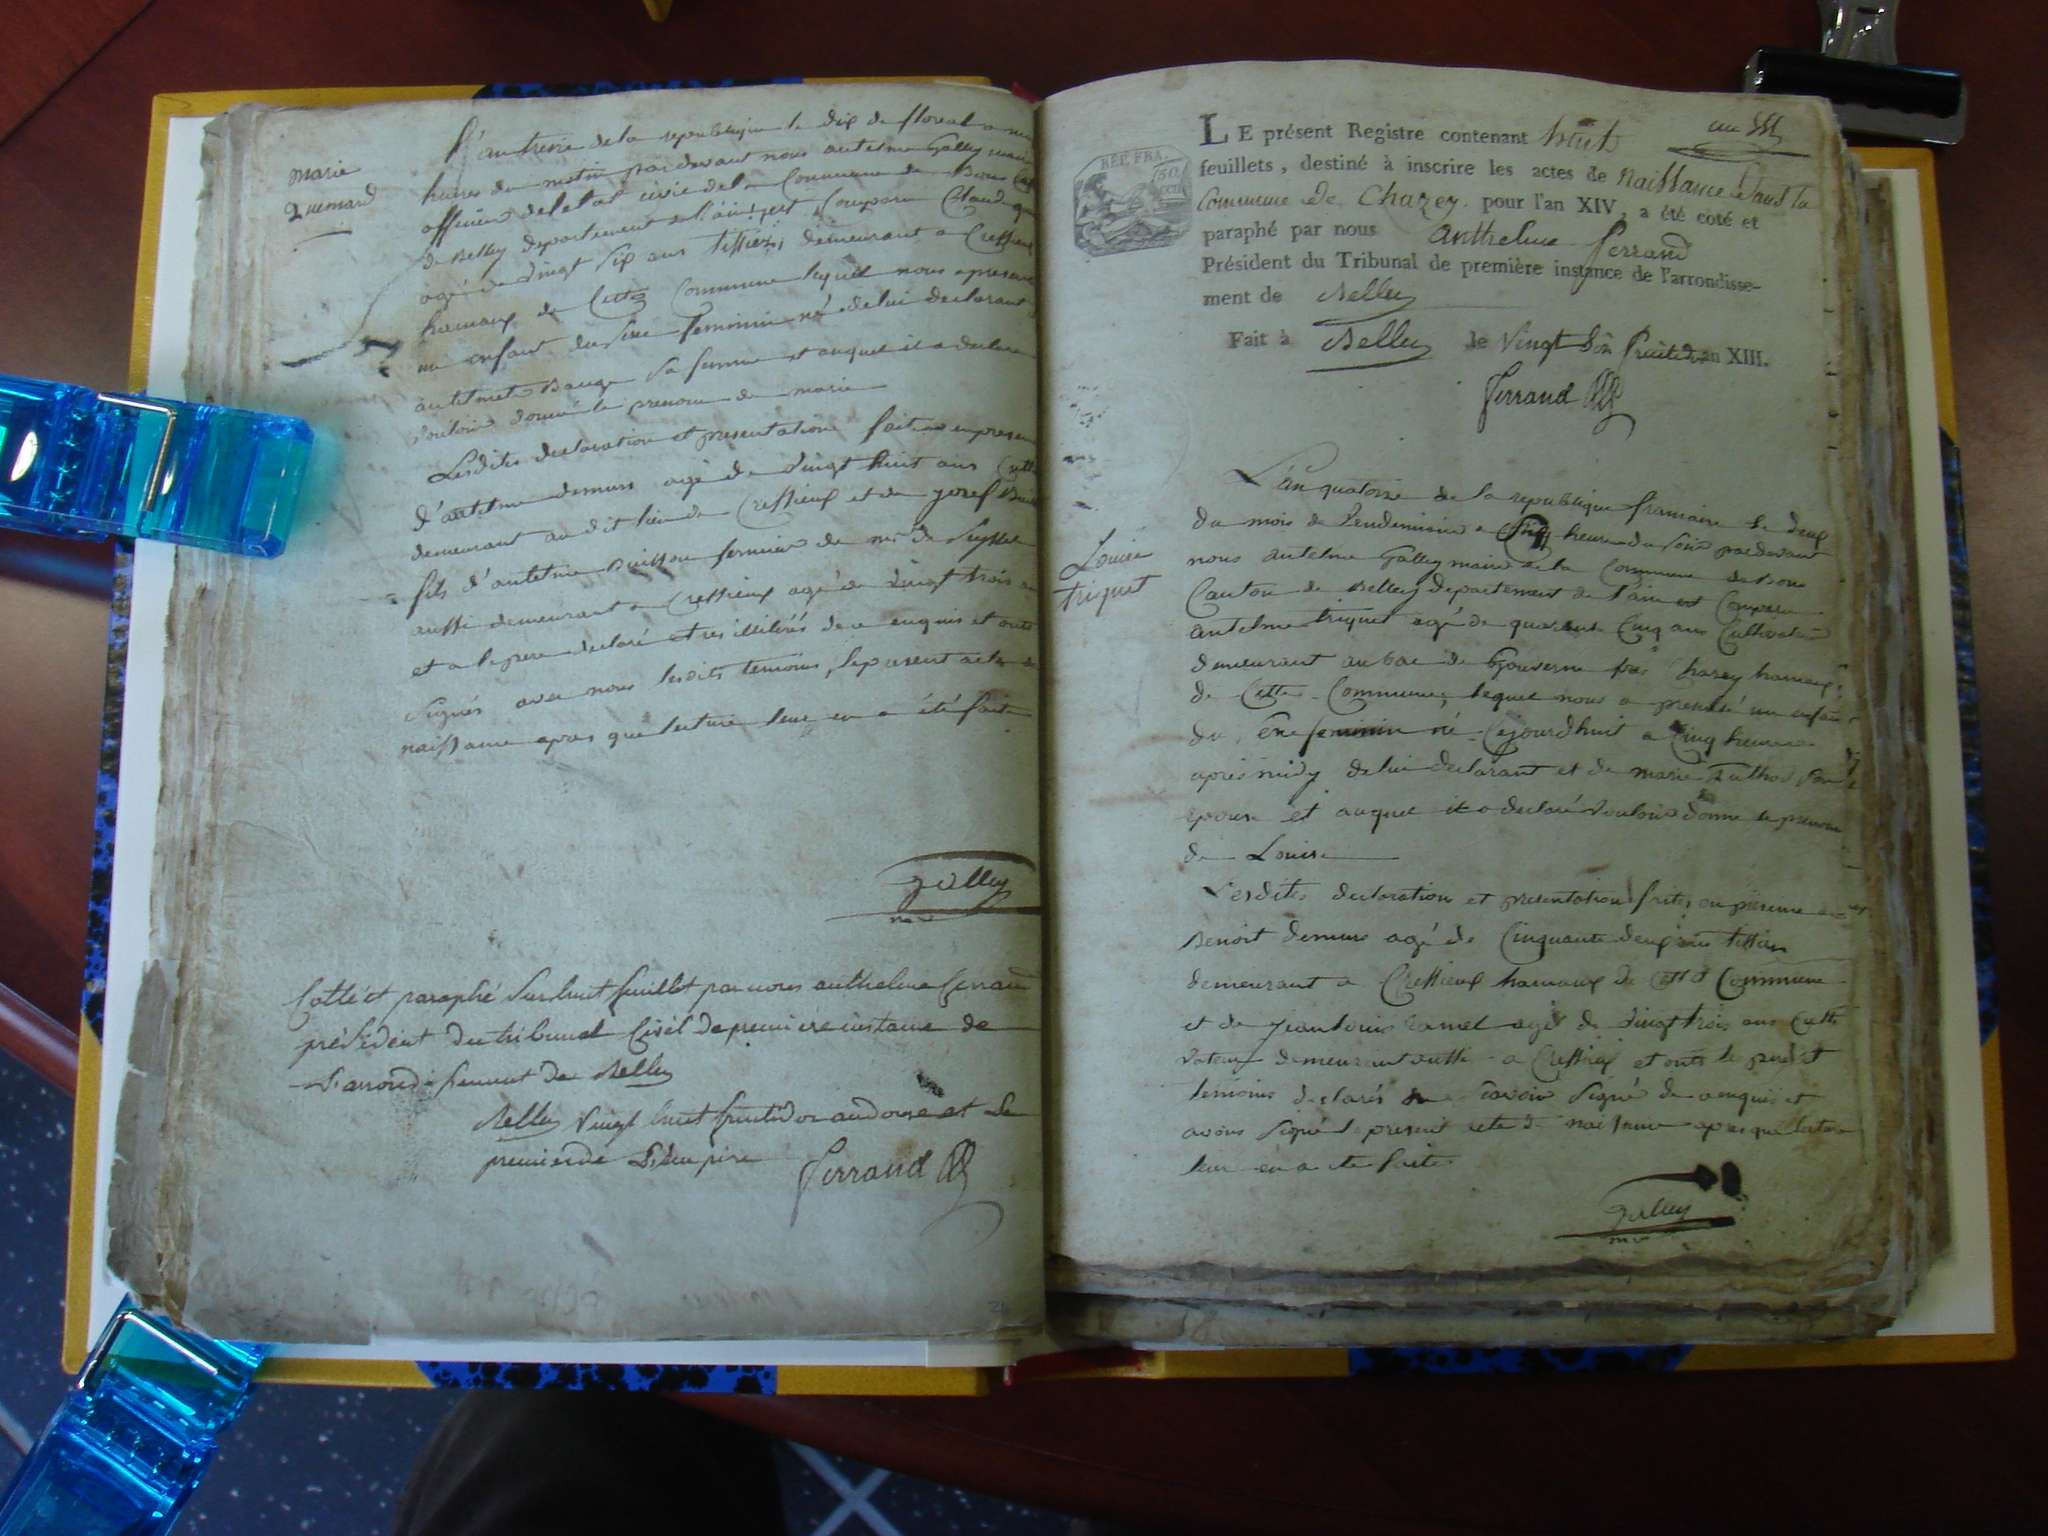 marie
Quemard
L'an treize de la republique le dix de floreal a
heures du matin par devant nous antelme Galley maire
officier de l'etat civil de la Commune de Bons
de Belley departement de l'ain est Comparu Claude
agé de vingt six ans tissier, demeurant a Cressieux
hameaux de Cette Commune lequel nous a presenté
un enfant du sexe feminin né de lui declarant
antelmet Bauge sa femme et auquel il a declaré
vouloir donner le prenom de marie
Lesdites declaration et presentation faites en presence
d'antelme demurs agé de vingt huit ans
demeurant au dit lieu de Cressieux et de josef
fils d'antelme Buisson fermier de
aussi demeurant a Cressieux agé de vingt trois
et a le pere declaré et
signés avec nous lesdits temoins, le present acte de
naissance apres que lecture leur en a été faite
galley
Cotté et paraphé sur huit feuillet par nous anthelme ferrand
président du tribunal Civil de premiere instance de
L'arrondissement de Belley
Belley vingt huit fructidor an douze et Le
premier de L'Empire ferrand
un
REP. FRA.
LE présent Registre contenant huit
feuillets, destiné à inscrire les actes de naissance dans la
Commune de Chazey pour l'an XIV, a été coté et
paraphé par nous anthelme ferrand
Président du Tribunal de première instance de l'arrondisse-
ment de Belley
Fait à Belley le vingt fructidor an XIII.
ferrand
Louise
triquet
L'an quatorze de la republique francaise le deux
du mois de vendemiaire a cinq heure du soir pardevant
nous antelme Galley maire de la Commune de Bons
Canton de Belley departement de l'ain est Comparu
antelme triquet agé de quarante Cinq ans Cultivateur
demeurant au bac de près Chazey hameaux
de Cette Commune, lequel nous a presenté un enfant
du sexe feminin né Cejourdhuit a Cinq heures
après midy de lui declarant et de marie son
epouse et auquel il a declaré vouloir donné le prenom
de Louise
Lesdites declaration et presentation faites en presence de
Benoit demurs agé de Cinquante deux ans tissier
demeurant a Cressieux hameaux de Cette Commune
et de jean louis ramel agé de vingt trois ans Culti
vateur demeurant aussi a Cressieux et onts le pere et
temoins declarés ne savoir signé de ce enquis et
avons signé le present acte de naissance apres que lecture
leur en a ete faite
galley